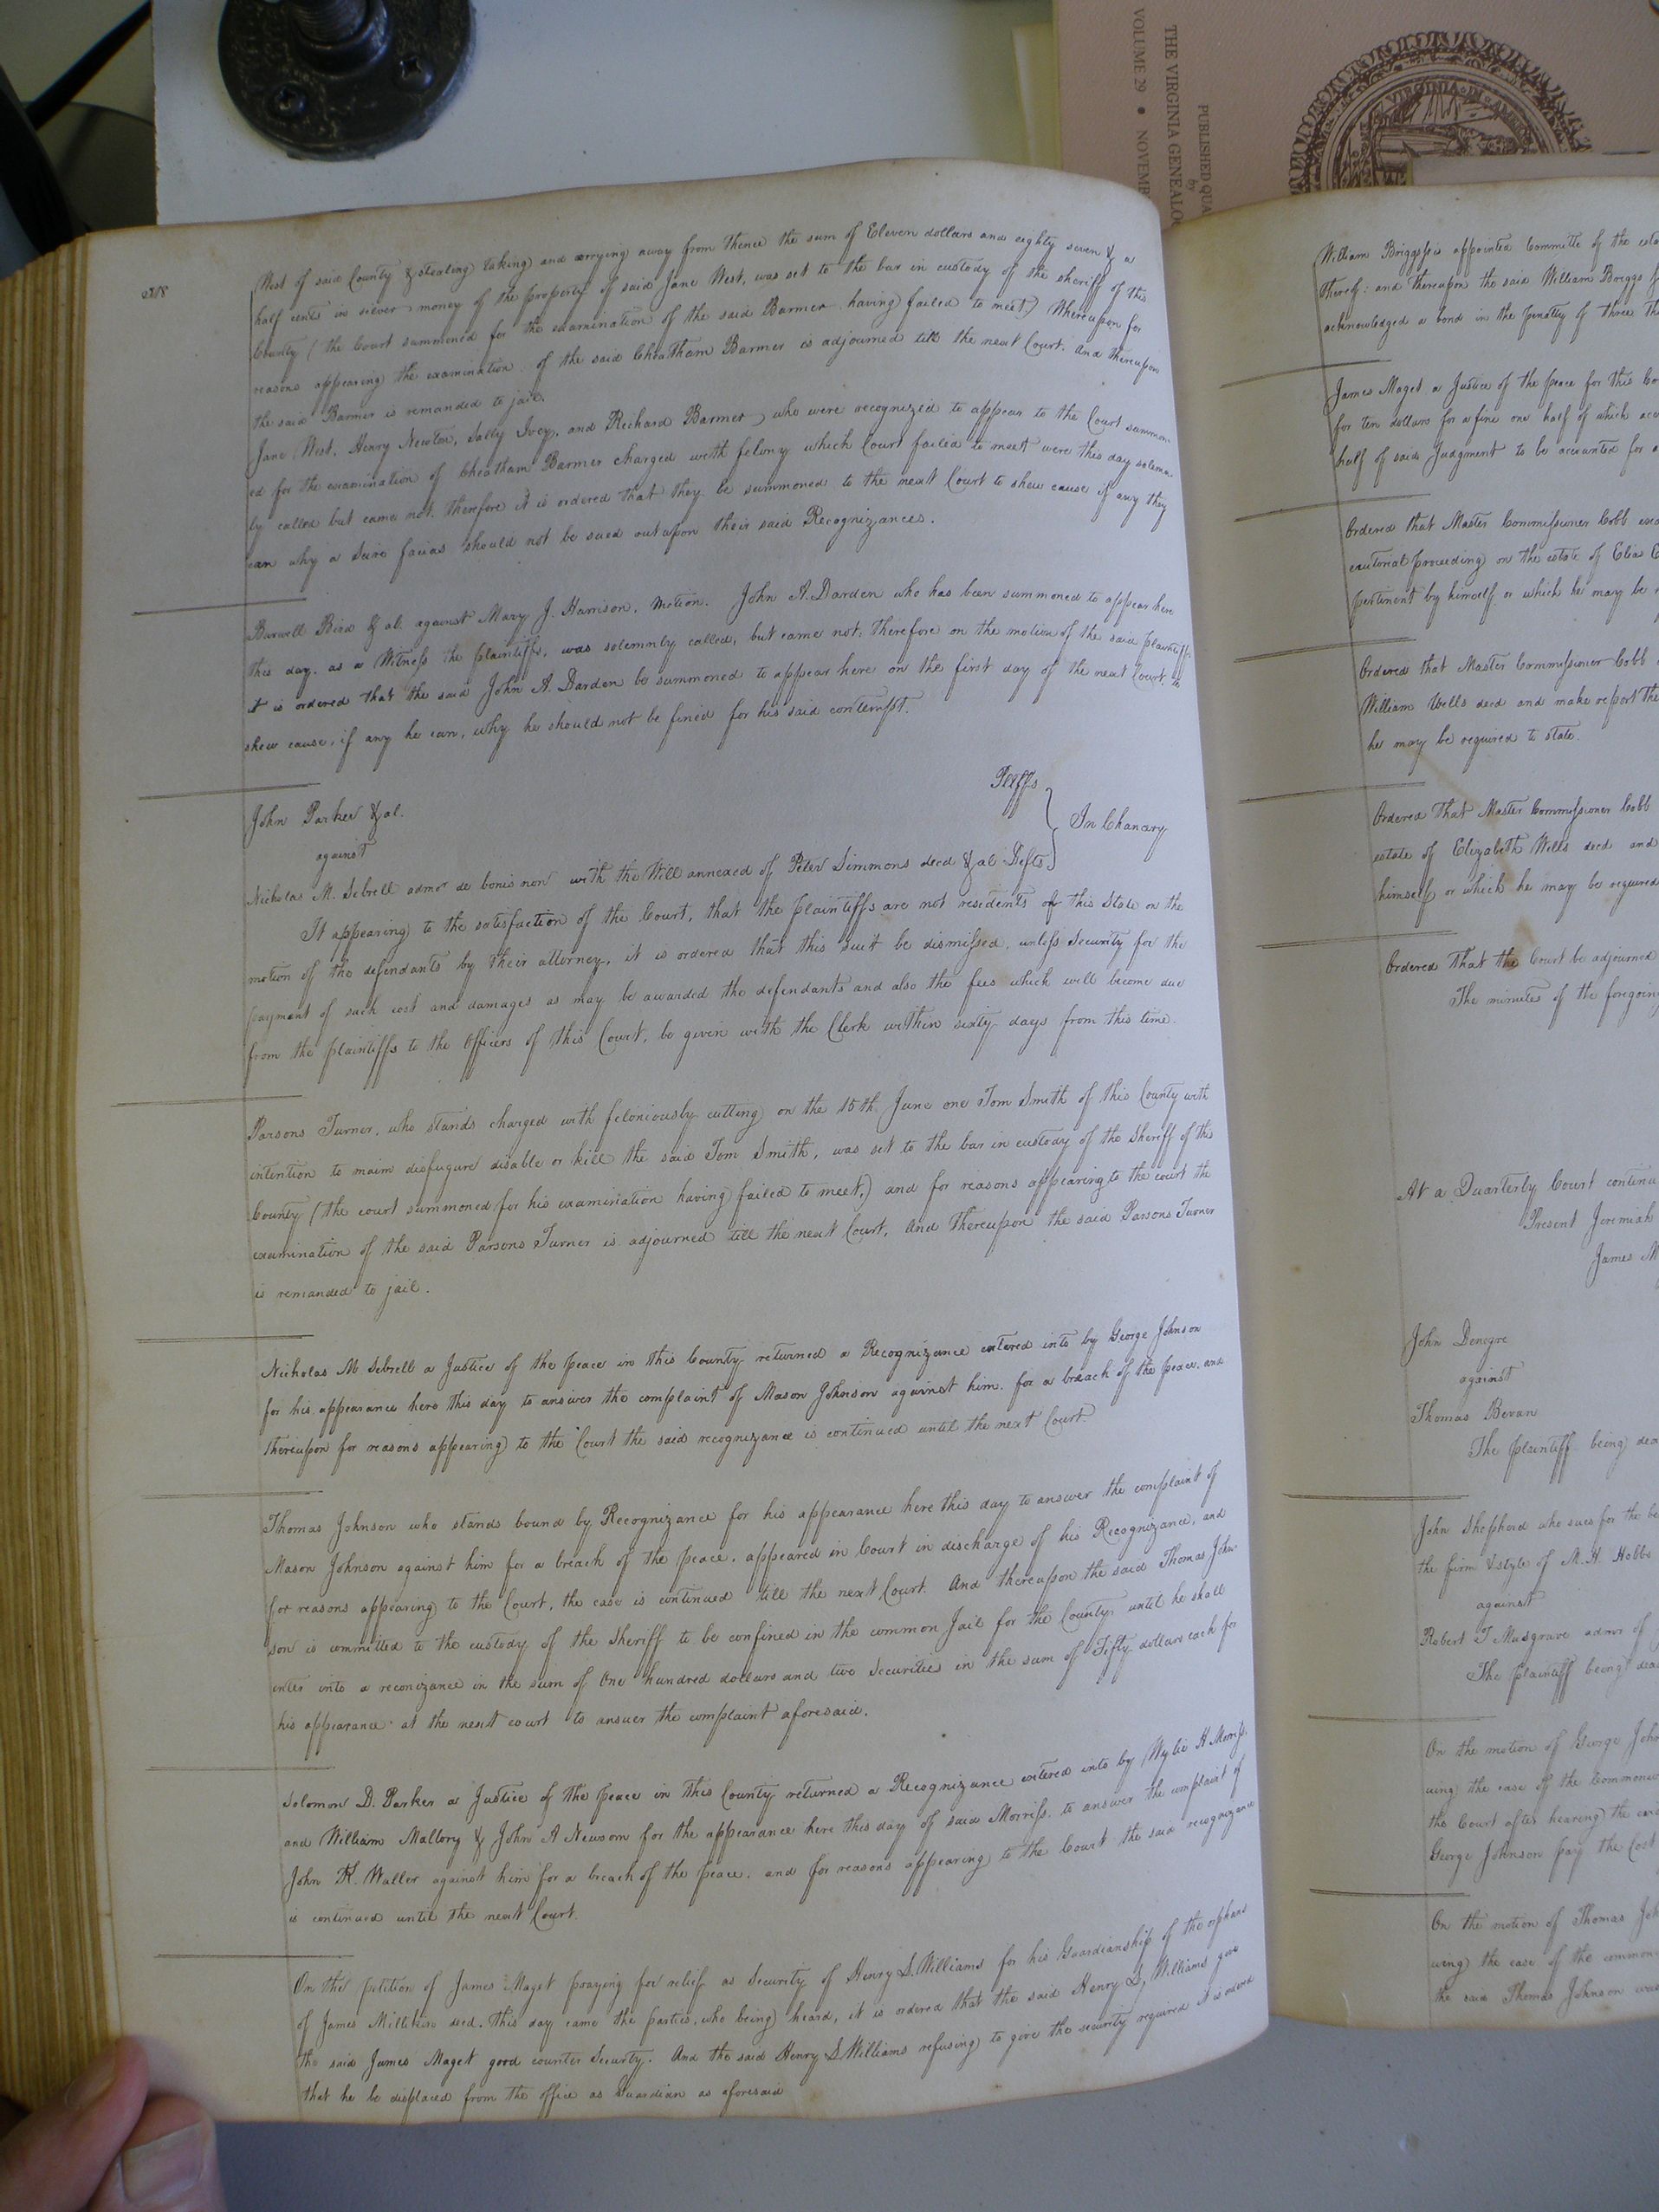 THE VIRGINIA GENEALO
VOLUME 29 • NOVEMB
PUBLISHED QUA
by
VIRGINIA · IN ·
West of said County & stealing taking and carrying away from thence the sum of Eleven dollars and eighty seven & a
half cents in silver money of the property of said Jane West, was set to the bar in custody of the sheriff of this
County (the Court summoned for the examination of the said Barmer having failed to meet) Whereupon for
reasons appearing the examination of the said Cheatham Barmer is adjourned till the next Court. And thereupon
the said Barmer is remanded to jail.
Jane West, Henry Newton, Sally Ivey, and Richard Barmer, who were recognized to appear to the Court summon-
ed for the examination of Cheatham Barmer charged with felony which Court failed to meet were this day solemn-
ly called but came not. therefore it is ordered that they be summoned to the next Court to shew cause if any they
can why a Scire facias should not be sued out upon their said Recognizances.
Burwell Bird & al. against Mary J. Harrison. Motion. John A. Darden who has been summoned to appear here
this day. as a Witness the plaintiffs, was solemnly called, but came not: therefore on the motion of the said plaintiffs
it is ordered that the said John A. Darden be summoned to appear here on the first day of the next Court. to
shew cause, if any he can, why he should not be fined for his said contempt.
John Parker & al. Plffs
against In Chancery
Nicholas M. Sebrell admor de bonis non with the Will annexed of Peter Simmons decd & al Defts.
It appearing to the satisfaction of the Court, that the plaintiffs are not residents of this State on the
motion of the defendants by their attorney, it is ordered that this suit be dismissed, unless Security for the
payment of such cost and damages as may be awarded the defendants and also the fees which will become due
from the plaintiffs to the Officers of this Court, be given with the Clerk within sixty days from this time.
Parsons Turner, who stands charged with feloniously cutting on the 15th June one Tom Smith of this County with
intention to maim disfugure disable or kill the said Tom Smith, was set to the bar in custody of the Sheriff of this
County (the court summoned for his examination having failed to meet,) and for reasons appearing to the court the
examination of the said Parsons Turner is adjourned till the next Court, And Thereupon the said Parsons Turner
is remanded to jail.
Nicholas M Sebrell a Justice of the peace in this County returned a Recognizance entered into by George Johnson
for his appearance here this day to answer the complaint of Mason Johnson against him. for a breach of the peace. and
thereupon for reasons appearing to the Court the said recognizance is continued until the next Court.
Thomas Johnson who stands bound by Recognizance for his appearance here this day to answer the complaint of
Mason Johnson against him for a breach of the peace. appeared in Court in discharge of his Recognizance, and
for reasons appearing to the Court, the case is continued till the next Court. And thereupon the said Thomas John-
son is committed to the custody of the Sheriff to be confined in the common Jail for the County until he shall
enter into a reconizance in the sum of One hundred dollars and two Securities in the sum of Fifty dollars each for
his appearance at the next court to answer the complaint aforesaid.
Solomon D. Parker a Justice of the peace in this County returned a Recognizance entered into by Wylie H Morriss.
and William Mallory & John A Newsom for the appearance here this day of said Morriss. to answer the complaint of
John K. Waller against him for a breach of the peace. and for reasons appearing to the Court the said recognizance
is continued until the next Court.
On the petition of James Maget praying for relief as Security of Henry S. Williams for his Guardianship of the orphans
of James Millikin decd. this day came the parties, who being heard, it is ordered that the said Henry S. Williams give
the said James Maget good counter Security. And the said Henry S Williams refusing to give the security required it is ordered
that he be displaced from the office as Guardian as aforesaid
William Briggs is appointed Committe of the esta
thereof: and thereupon the said William Briggs
acknowledged a bond in the penalty of three Th
James Maget a Justice of the peace for this Co
for ten dollars for a fine one half of which acc
half of said Judgment to be accounted for
Ordered that Master Commissioner Cobb
executorial proceeding on the estate of Elias
pertinent by himself or which he may be
Ordered that Master Commissioner Cobb
William Wells decd and make report the
he may be required to state.
Ordered That Master Commissioner Cobb
estate of Elizabeth Wells decd and
himself or which he may be required
Ordered That the Court be adjourned
The minutes of the foregoing
At a Quarterly Court continu
Present Jeremiah
James M
John Denegre
against
Thomas Bevan
The plaintiff being dea
John Shepherd who sues for the be
the firm & style of M. H. Hobbs
against
Robert T Musgrave admor of
The plaintiff being dea
On the motion of George John
uing the case of the Commonw
the Court after hearing the evi
George Johnson pay the Cost
On the motion of Thomas Joh
uing the case of the common
the said Thomas Johnson was